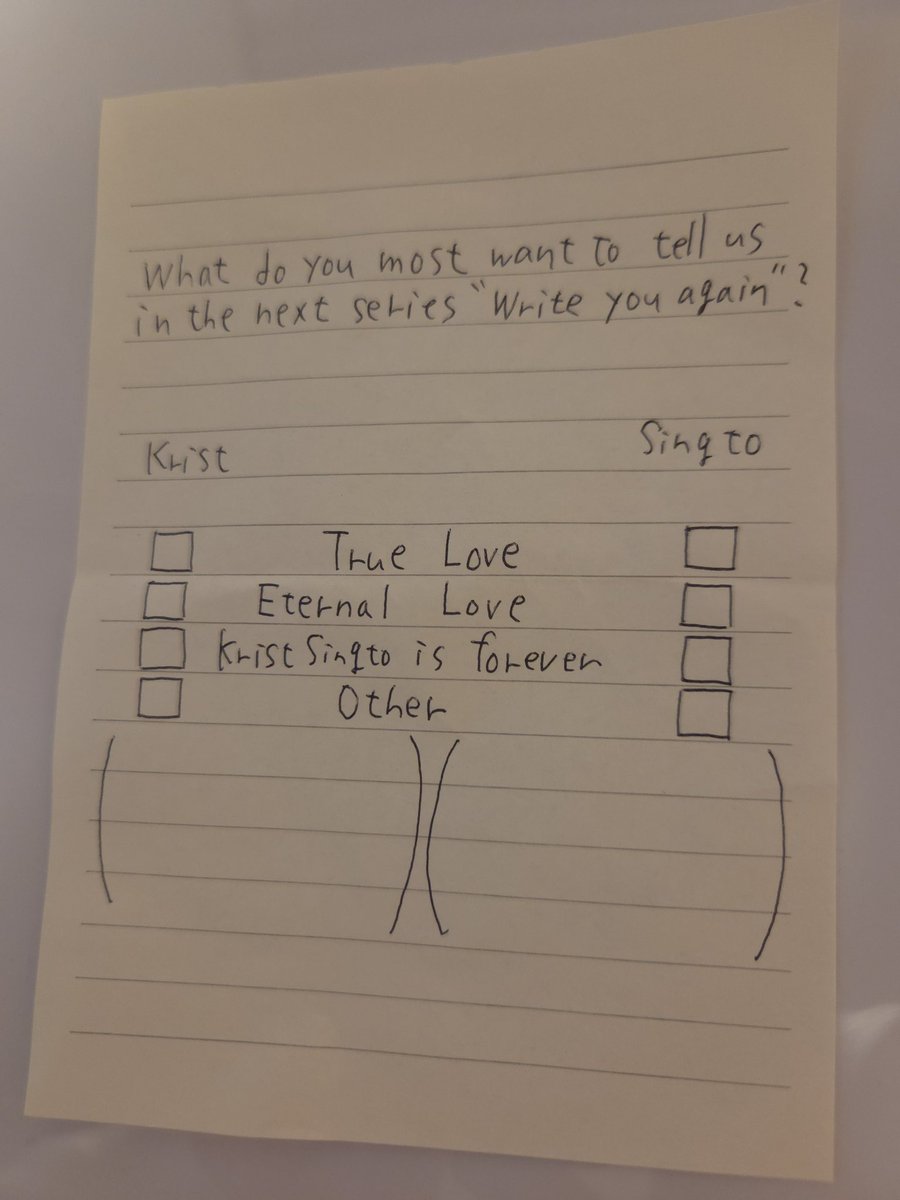 What do you most want to tell us
in the next series "Write you again"?
Krist Singto
☐ True Love ☐
☐ Eternal Love ☐
☐ KristSingto is forever ☐
☐ Other ☐
( ) ( )